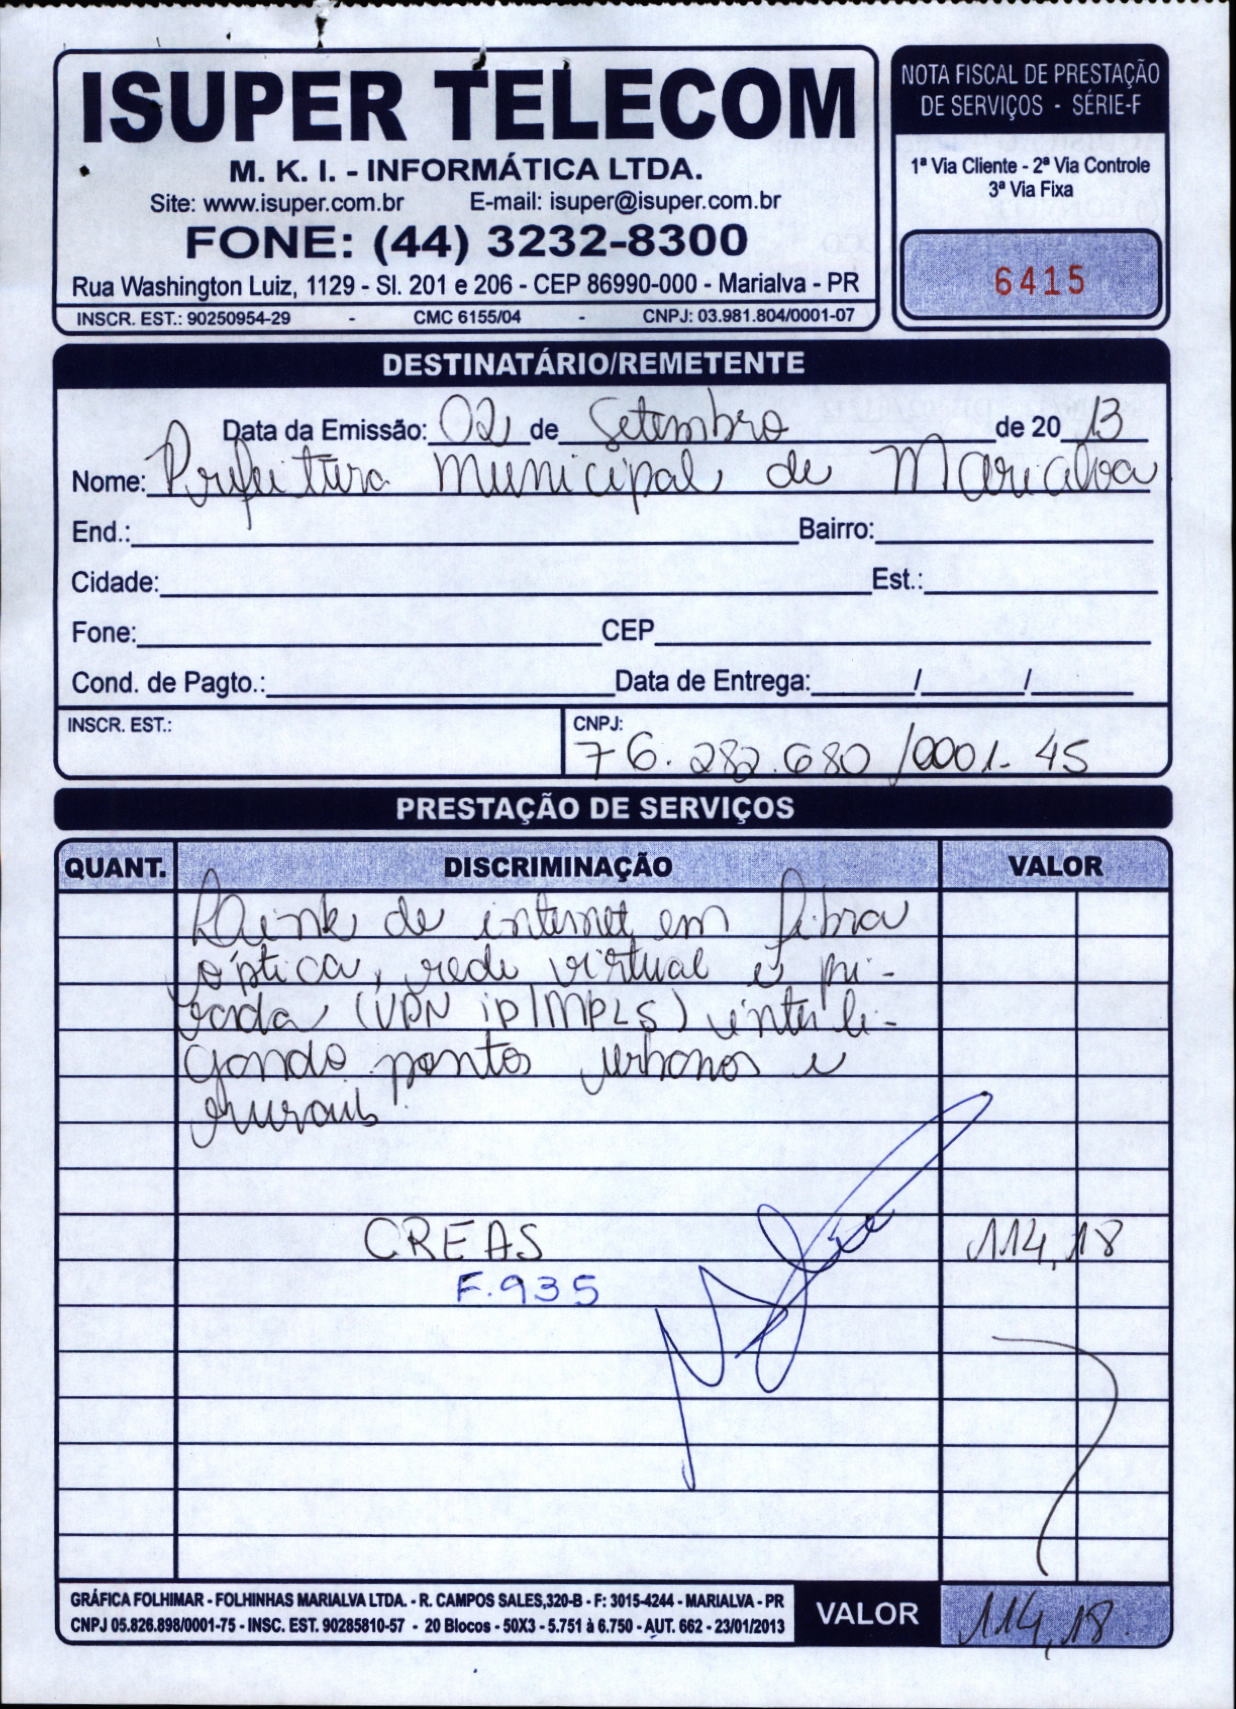 ISUPER TELECOM
M. K. I. - INFORMÁTICA LTDA.
Site: www.isuper.com.br E-mail: isuper@isuper.com.br
FONE: (44) 3232-8300
Rua Washington Luiz, 1129 - Sl. 201 e 206 - CEP 86990-000 - Marialva - PR
INSCR. EST.: 90250954-29 - CMC 6155/04 - CNPJ: 03.981.804/0001-07
NOTA FISCAL DE PRESTAÇÃO
DE SERVIÇOS - SÉRIE-F
1ª Via Cliente - 2ª Via Controle
3ª Via Fixa
6415
DESTINATÁRIO/REMETENTE
Data da Emissão: 02 de Setembro de 20 13
Nome: Prefeitura Municipal de Marialva
End.: Bairro:
Cidade: Est.:
Fone: CEP
Cond. de Pagto.: Data de Entrega: / /
INSCR. EST.: CNPJ:
76.282.680/0001-45
PRESTAÇÃO DE SERVIÇOS
QUANT. DISCRIMINAÇÃO VALOR
de internet em fibra
óptica, rede virtual e pri-
vada (VPN IP/MPLS) interli-
gando pontos urbanos e
rurais
CREAS 114,18
F.935
GRÁFICA FOLHIMAR - FOLHINHAS MARIALVA LTDA. - R. CAMPOS SALES,320-B - F: 3015-4244 - MARIALVA - PR
CNPJ 05.826.898/0001-75 - INSC. EST. 90285810-57 - 20 Blocos - 50X3 - 5.751 à 6.750 - AUT. 662 - 23/01/2013
VALOR 114,18